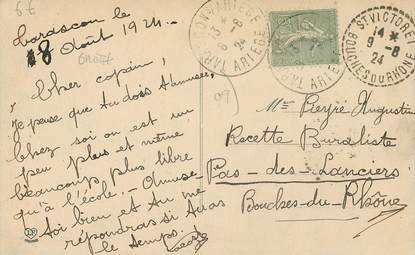 6€
Tarascon le
8 Août 1924.
Cher copain,
Je pense que tu dois t'amuser
Chez soi on est un
peu plus et même
beaucoup plus libre
qu'à l'école. Amuse
toi bien et tu me
répondras si tu as
le temps.
TARASCON ARIEGE
13 *
8-8
24
TARASCON ARIEGE
ST VICTORET
14 *
9-8
24
BOUCHES DU RHONE
09
Mr Pieyre Augustin
Recette Buraliste
Pas-des-Lanciers
Bouches-du-Rhône